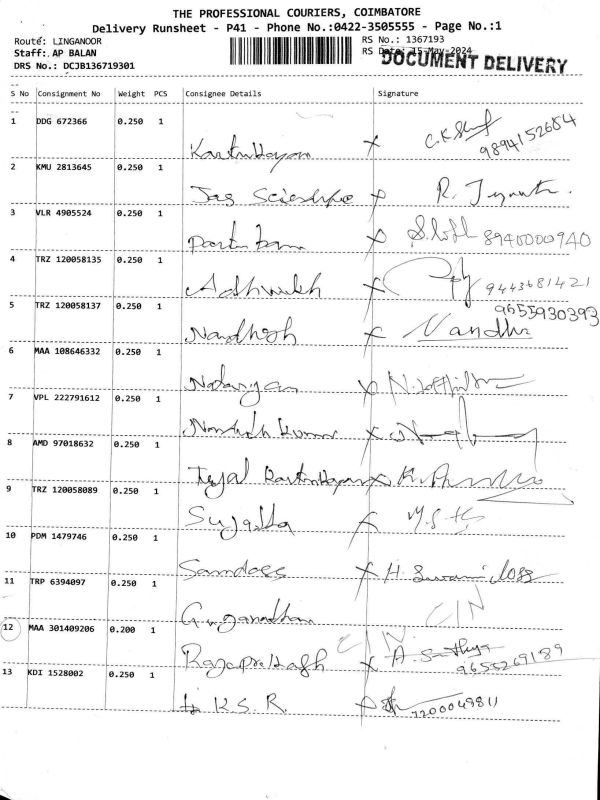 THE PROFESSIONAL COURIERS, COIMBATORE
Delivery Runsheet - P41 - Phone No.:0422-3505555 - Page No.:1
Route: LINGANOOR
RS No.: 1367193
Staff: AP BALAN
RS Date: 15-May-2024
DOCUMENT DELIVERY
DRS No.: DCJB136719301
S No Consignment No Weight PCS Consignee Details Signature
1 DDG 672366 0.250 1
Karthikeyan x C.K.
9894152684
2 KMU 2813645 0.250 1
Jas x R.
3 VLR 4905524 0.250 1
x 8940000940
4 TRZ 120058135 0.250 1
Adhwikh x 9443681421
5 TRZ 120058137 0.250 1
9655930393
Nandhosh x Nandhi
6 MAA 108646332 0.250 1
Natarajan x
7 VPL 222791612 0.250 1
Kumar x
8 AMD 97018632 0.250 1
Tejal Karthikeyan x
9 TRZ 120058089 0.250 1
Sujatha x
10 PDM 1479746 0.250 1
Samdoes x H.
11 TRP 6394097 0.250 1
C/N
12 MAA 301409206 0.200 1
C/N
Rajaprakash x A. Sandhya
9655269189
13 KDI 1528002 0.250 1
K.S.R. x
7200049811